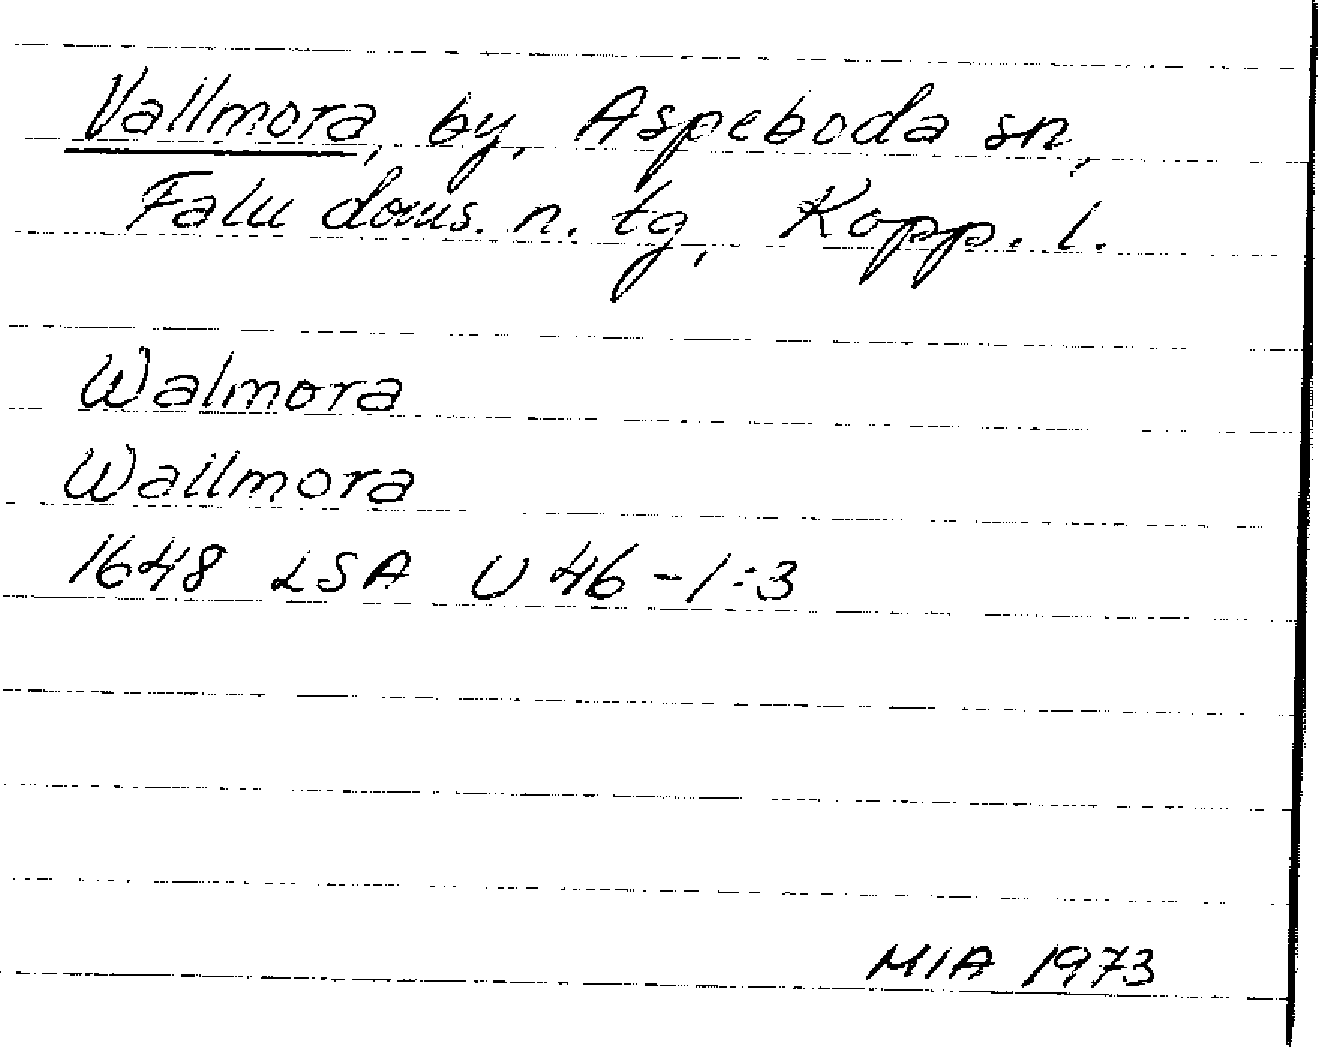 Vallmora, by, Aspeboda sn,
Falu doms. n. tg, Kopp. l.
Walmora
Wallmora
1648 LSA U 46-1:3
MIA 1973